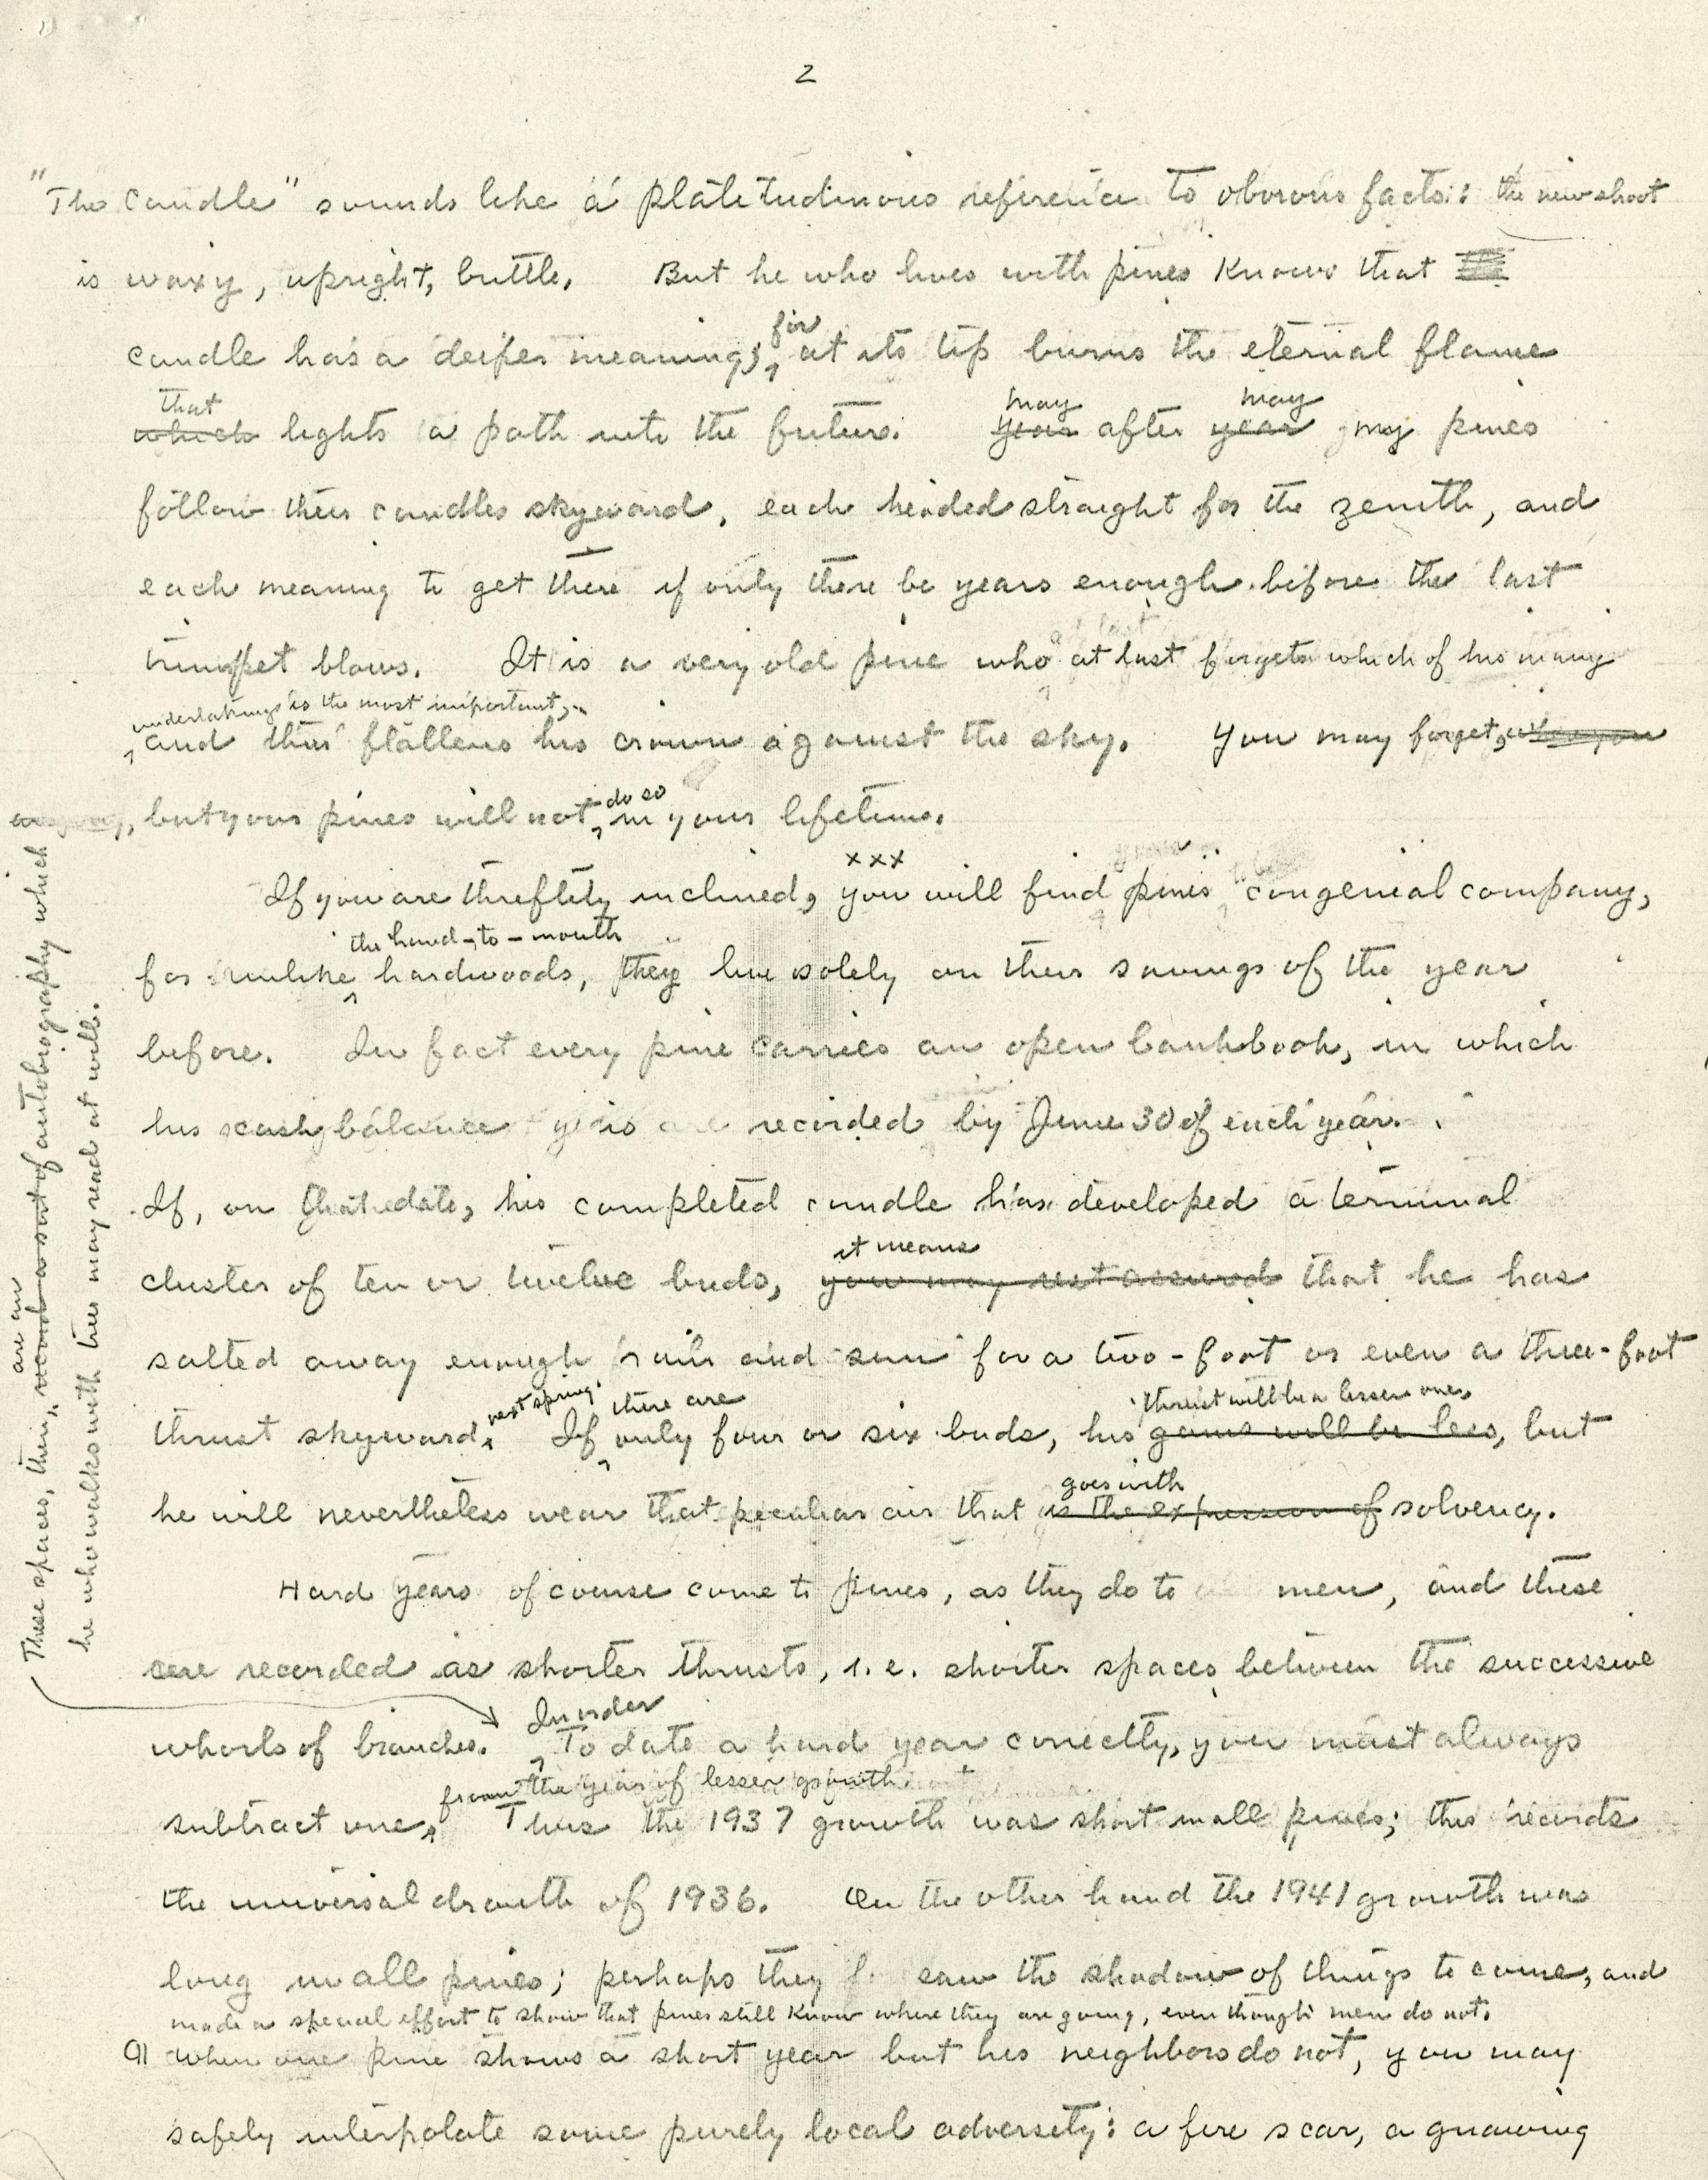 2
"The candle" sounds like a platitudinous reference to obvious facts: the new shoot
is waxy, upright, brittle. But he who lives with pines knows that
candle has a deeper meaning, for at its tip burns the eternal flame
that
which lights a path into the future. may
year after may
year my pines
follow their candles skyward, each headed straight for the zenith, and
each meaning to get there if only there be years enough before the last
trumpet blows. It is a very old pine who at last forgets which of his many
undertakings is the most important,
and thus flattens his crown against the sky. You may forget,
, but your pines will not do so in your lifetime.
xxx
If you are thriftily inclined, you will find pines congenial company,
the hand-to-mouth
for unlike hardwoods, they live solely on their savings of the year
before. In fact every pine carries an open bankbook, in which
his cash balance is recorded by June 30 of each year.
If, on that date, his completed candle has developed a terminal
it means
cluster of ten or twelve buds, you may rest assured that he has
salted away enough rain and sun for a two-foot or even a three-foot
next spring. there are thrust will be a lesser one,
thrust skyward. If only four or six buds, his gains will be less, but
goes with
he will nevertheless wear that peculiar air that is the expression of solvency.
Hard years of course come to pines, as they do to men, and these
are recorded as shorter thrusts, i.e. shorter spaces between the successive
In order
whorls of branches. To date a hard year correctly, you must always
from the year of lesser growth
subtract one, Thus the 1937 growth was short in all pines; this records
the universal drouth of 1936. On the other hand the 1941 growth was
long in all pines; perhaps they saw the shadow of things to come, and
made a special effort to show that pines still know where they are going, even though men do not.
¶ When one pine shows a short year but his neighbors do not, you may
safely interpolate some purely local adversity: a fire scar, a gnawing
are an
These spaces, then, record a sort of autobiography which
he who walks with trees may read at will.